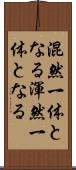 混然一体と
なる渾然一
体となる